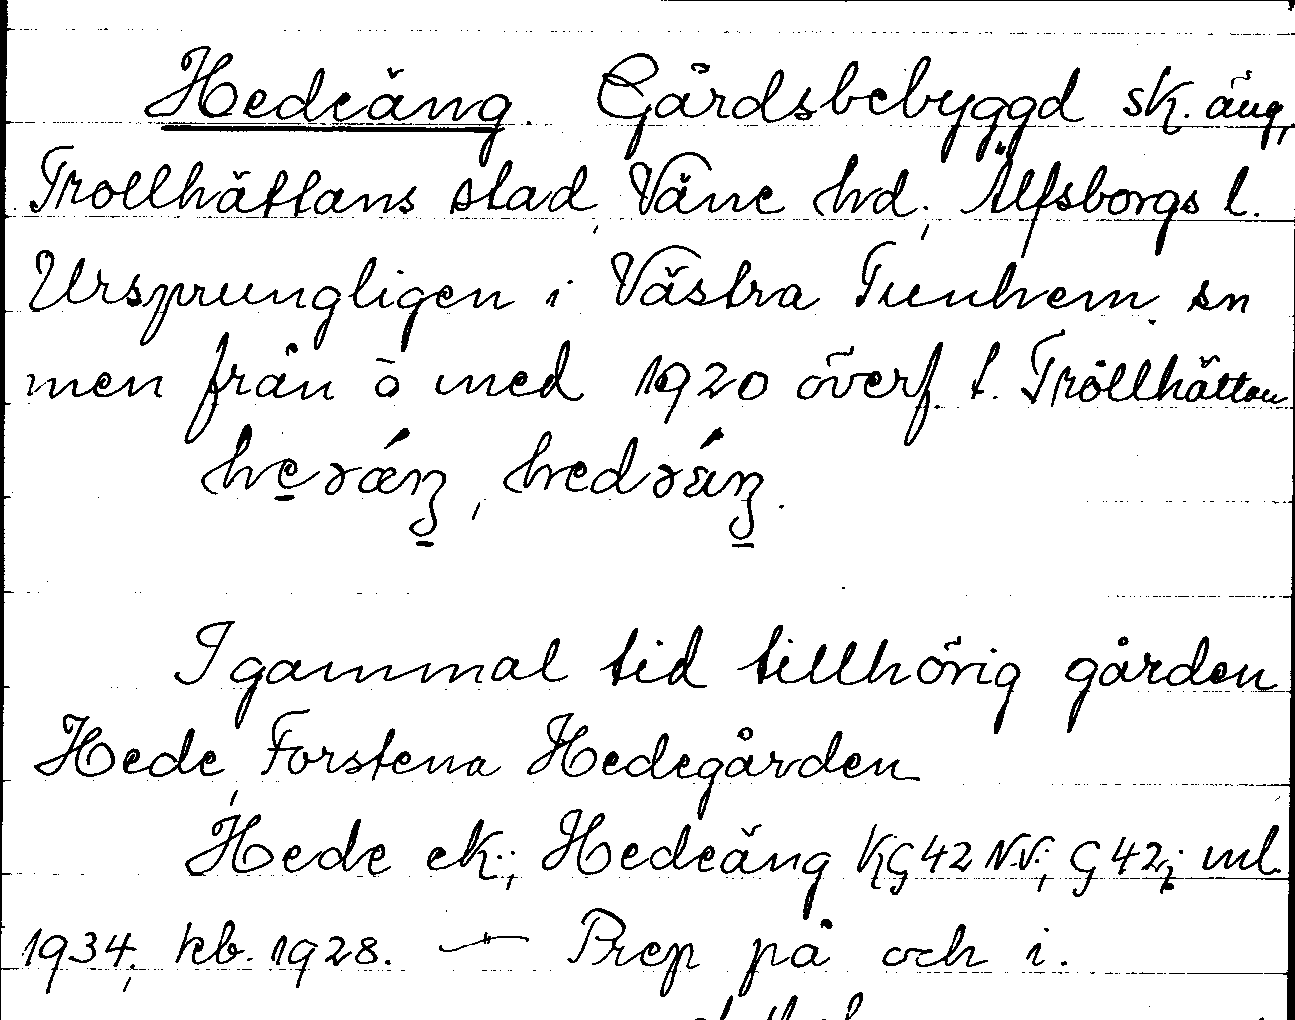 Hedeäng. Gårdsbebyggd sk. äng,
Trollhättans stad, Väne hd, Älfsborgs l.
Ursprungligen i Västra Tunhem. sn
men från o med 1920 överf. t. Trollhättan
I gammal tid tillhörig gården
Hede, Forstena Hedegården
Hede ek.; Hedeäng KG 42 N.V.; G 42; ml.
1934, kb. 1928. — Prep på och i.